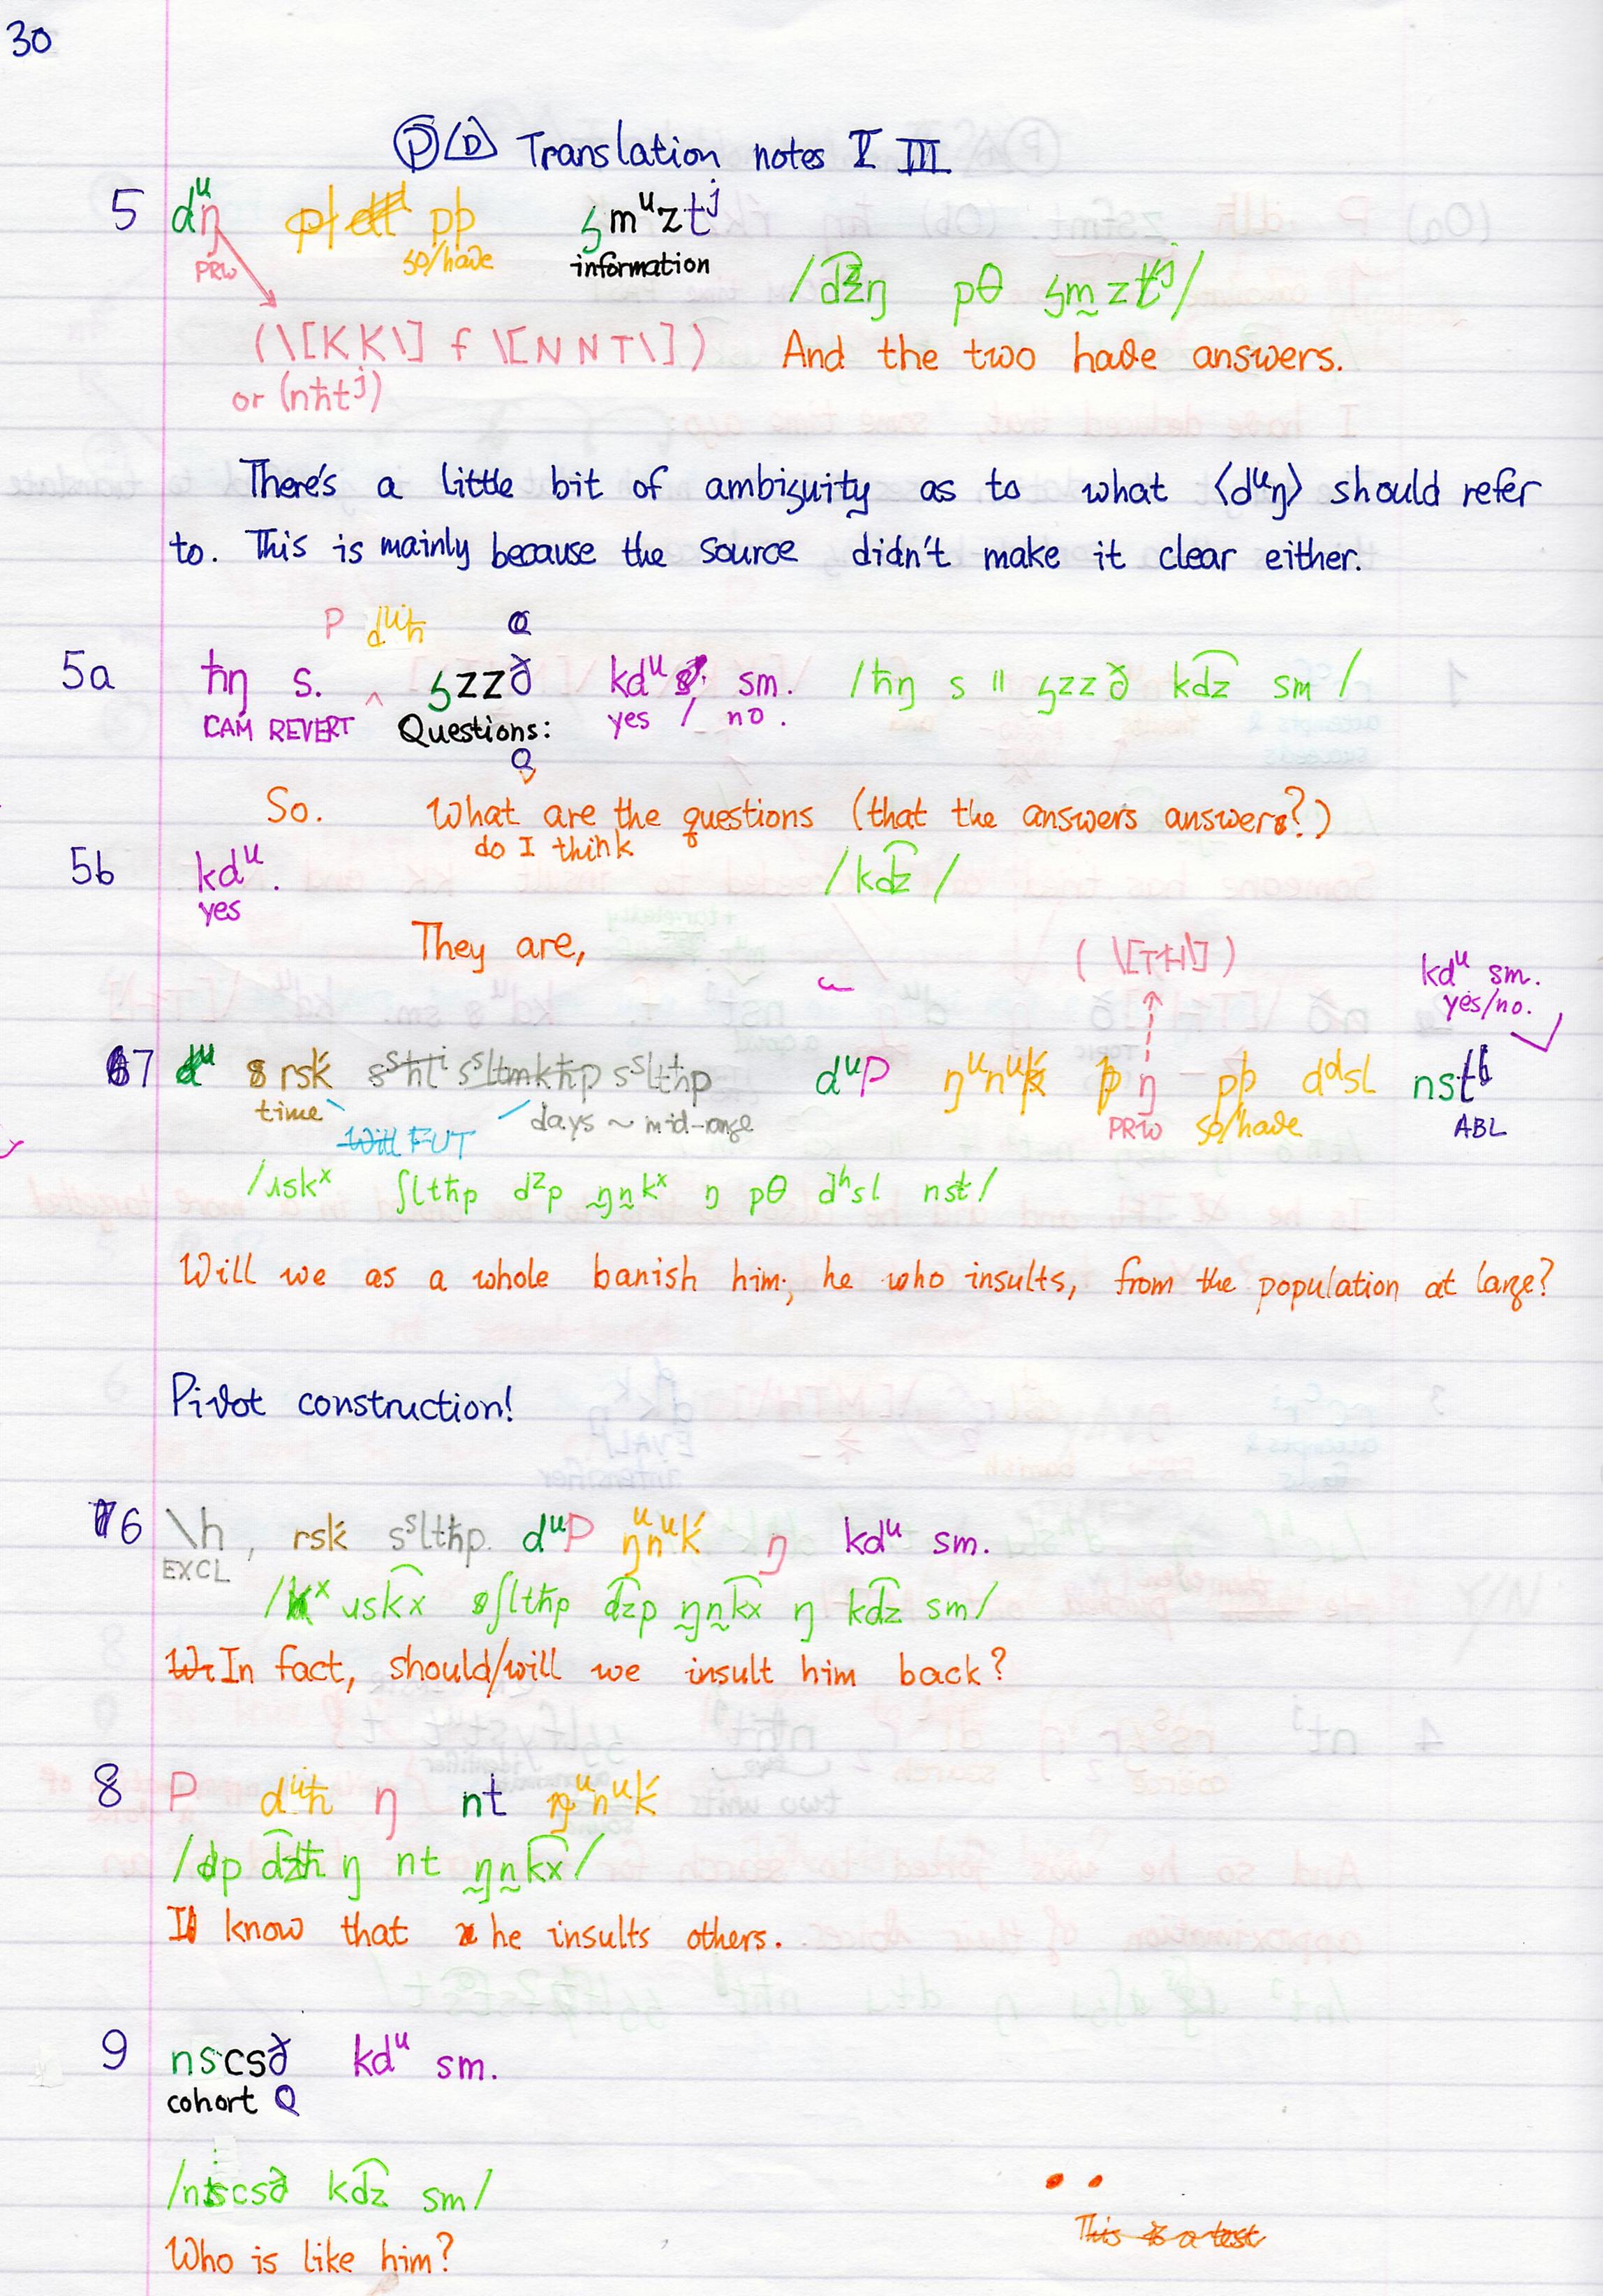 30
Ⓟ Ⓓ Translation notes III
5 dᵘŋ pþ ʢmᵘztʲ
PRW so/have information
/d͡zŋ pθ ʢm̰ztʲ/
(\[KK\] f \[NNT\]) And the two have answers.
or (nħtʲ)
There's a little bit of ambiguity as to what ⟨dᵘŋ⟩ should refer
to. This is mainly because the source didn't make it clear either.
P dᵘħ Q
5a ħŋ s. ‸ ʢzzð kdᵘ sm. /ħŋ s ǁ ʢzzð kd͡z sm/
CAM REVERT Questions: yes / no.
Q
So. What are the questions (that the answers answer?)
do I think
5b kdᵘ. /kd͡z/
yes
They are,
(\[TH\]) kdᵘ sm.
yes/no.
7 rsḱ sˢlħp dᵘP ŋᵘnᵘḱ ŋ pþ dᵈsl nstᵇ
time days ~ mid-range PRW so/have ABL
FUT
/ɹskˣ ʃlħp dᶻp ŋ̰n̰kˣ ŋ pθ dʱsl nst/
Will we as a whole banish him; he who insults, from the population at large?
Pivot construction!
6 \h, rsḱ sˢlħp. dᵘP ŋᵘnᵘḱ ŋ kdᵘ sm.
EXCL
/ɹsk͡x ʃlħp d͡zp ŋ̰n̰k͡x ŋ kd͡z sm/
In fact, should/will we insult him back?
8 P dᵘħ ŋ nt ŋᵘnᵘḱ
/p d͡zħ ŋ nt ŋ̰n̰k͡x/
I know that he insults others.
9 nscsð kdᵘ sm.
cohort Q
/nscsð kd͡z sm/
Who is like him?
This is a test